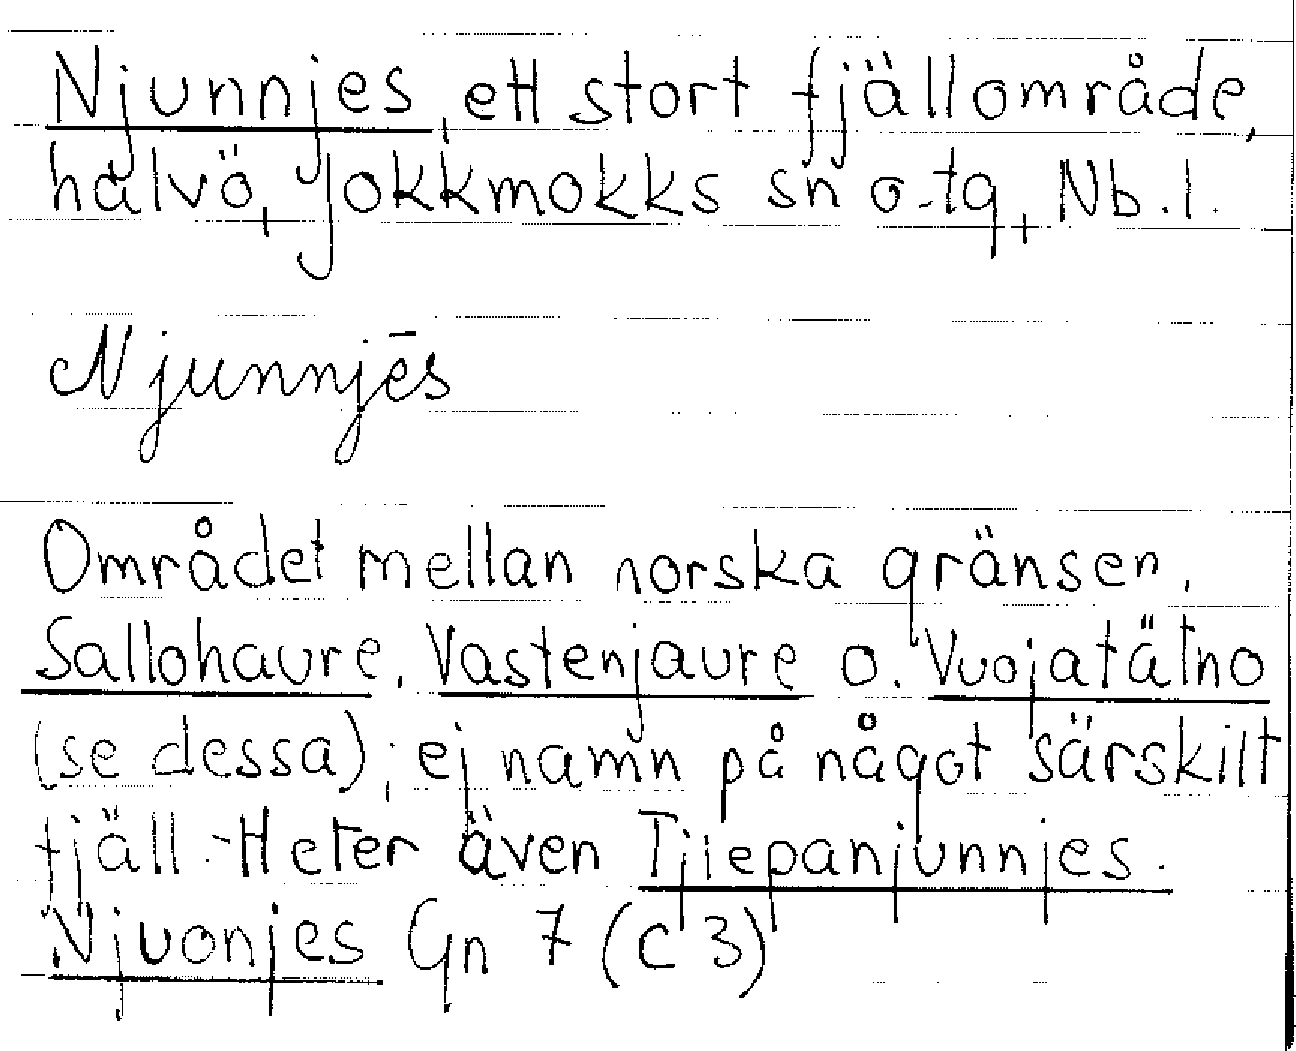 Njunnjes, ett stort fjällområde,
halvö, Jokkmokks sn o. tg, Nb. l.
Njunnjēs
Området mellan norska gränsen,
Sallohaure, Vastenjaure o. Vuojatätno
(se dessa); ej namn på något särskilt
fjäll. - Heter även Tjiepanjunnjes.
Njuonjes Gn 7 (C 3)